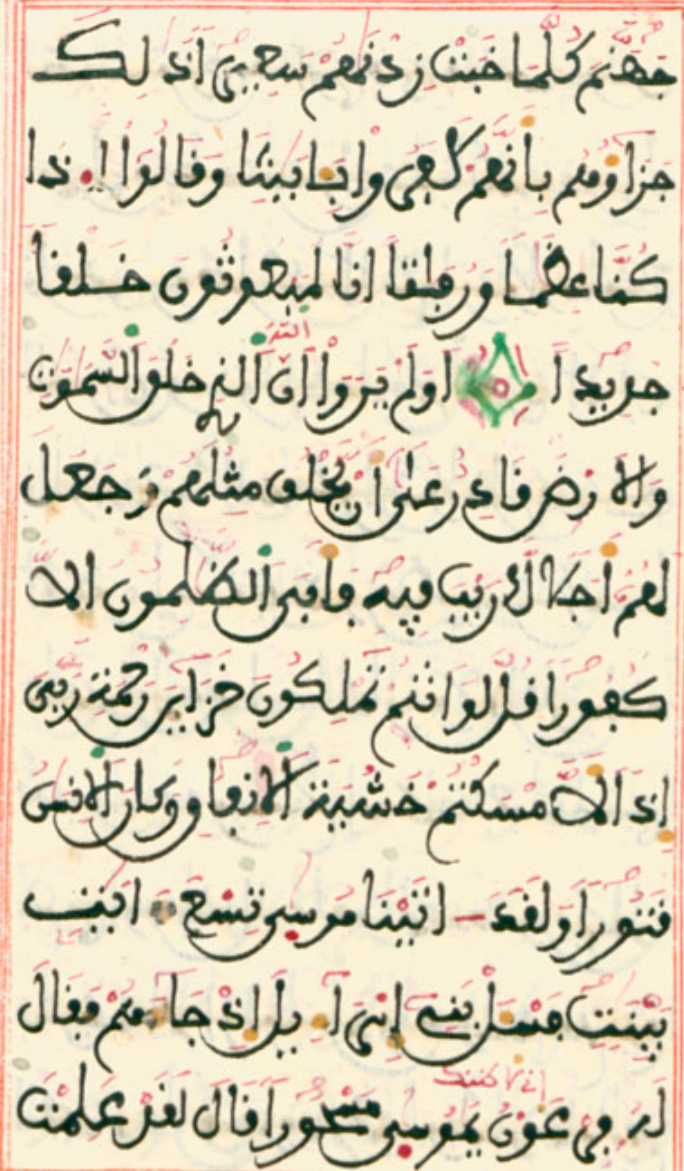 جهنم كلما خبت زدنهم سعيرا ذلك
جزاؤهم بانهم كفروا بايتنا وقالوا اذا
كنا عظما ورفتا انا لمبعوثون خلفا
جديدا اولم يروا ان الله الذي خلق السموت
والارض قادر على ان يخلق مثلهم وجعل
لهم اجلا لا ريب فيه فابى الظلمون الا
كفورا قل لو انتم تملكون خزاين رحمة ربي
اذا لامسكتم خشية الانفاق وكان الانسن
قتورا ولقد اتينا موسى تسع ايت
بينت فسل بني اسراءيل اذ جاءهم فقال
له فرعون اني لاظنك يموسى مسحورا قال لقد علمت